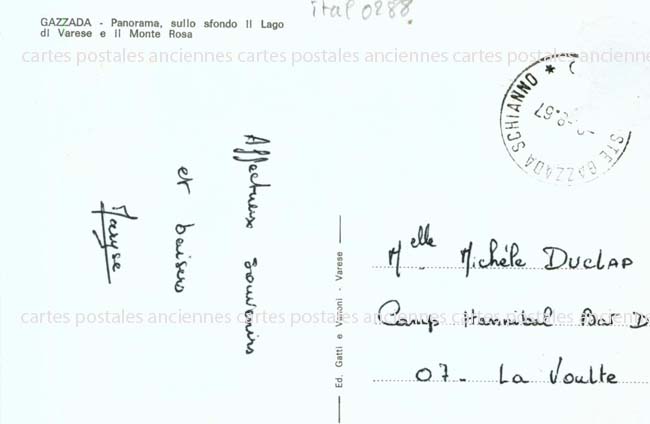 ital 0288
GAZZADA - Panorama, sullo sfondo Il Lago
di Varese e il Monte Rosa
cartes postales anciennes cartes postales anciennes cartes postales anciennes
STE GAZZADA SCHIANNO *
-8.67
Affectueux souvenirs
et baisers
Maryse
Ed. Gatti e Vanoni - Varese
Melle Michèle DUCLAP
Camp Hannibal Bat D
cartes postales anciennes cartes postales anciennes cartes postales anciennes
07 - La Voulte